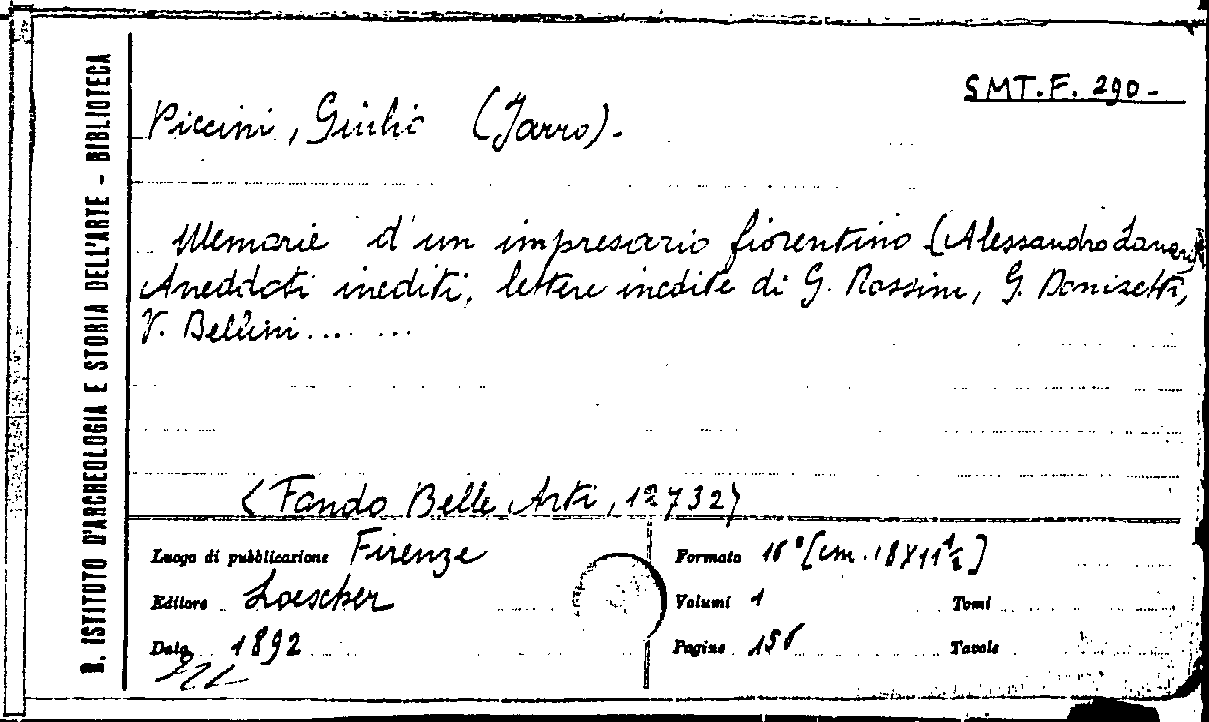 R. ISTITUTO D'ARCHEOLOGIA E STORIA DELL'ARTE - BIBLIOTECA
SMT.F. 290-
Piccini, Giulio (Jarro).
Memorie d'un impresario fiorentino (Alessandro Lanari)
Aneddoti inediti, lettere inedite di G. Rossini, G. Donizetti,
V. Bellini... ...
(Fondo Belle Arti, 12732)
Luogo di pubblicazione Firenze
Formato 16° [cm. 18X11½]
Editore Loescher
Volumi 1 Tomi
Data 1892
Pagine Tavole